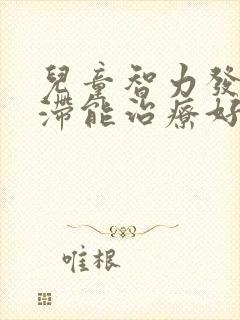 兒童智力發
滯能治療好
唯根